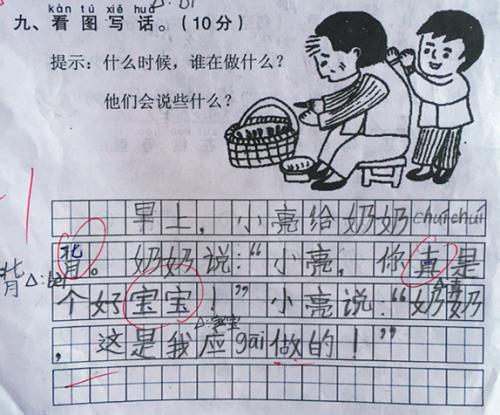 kàn tú xiě huà
九、看图写话。(10分)
提示：什么时候，谁在做什么？
他们会说些什么？
早上，小亮给奶奶chuíchuí
背。奶奶说：“小亮，你真是
个好宝宝！”小亮说：“奶奶
，这是我应gāi做的！”
背